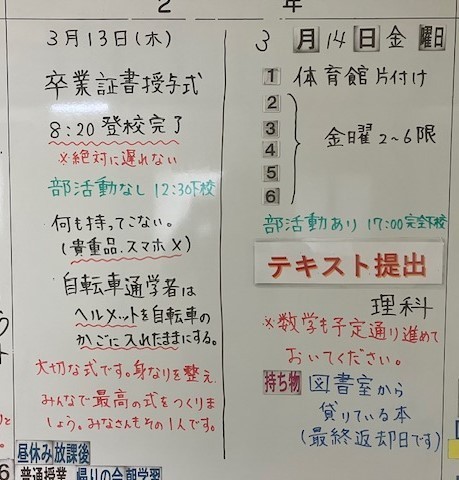 2 年
3月13日(木)
卒業証書授与式
8:20 登校完了
※絶対に遅れない
部活動なし 12:30下校
何も持ってこない。
(貴重品、スマホ×)
自転車通学者は
ヘルメットを自転車の
かごに入れたままにする。
大切な式です。身なりを整え、
みんなで最高の式をつくりま
しょう。みなさんもその1人です。
昼休み 放課後
普通授業 帰りの会 朝学習
3 月 14 日 金 曜日
1 体育館片付け
2
3
4
5
6
金曜2~6限
部活動あり 17:00完全下校
テキスト提出
理科
※数学も予定通り進めて
おいてください。
持ち物 図書室から
貸りている本
(最終返却日です)